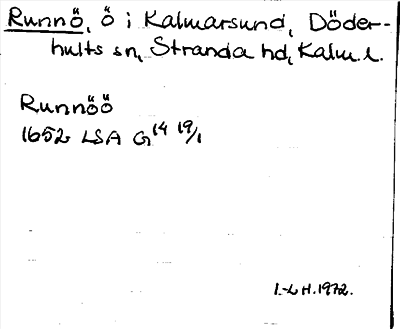 Runnö, ö i Kalmarsund, Döder-
hults sn, Stranda hd, Kalm. l.
Runnöö
1652 LSA G14 19/1
I.-L H. 1972.